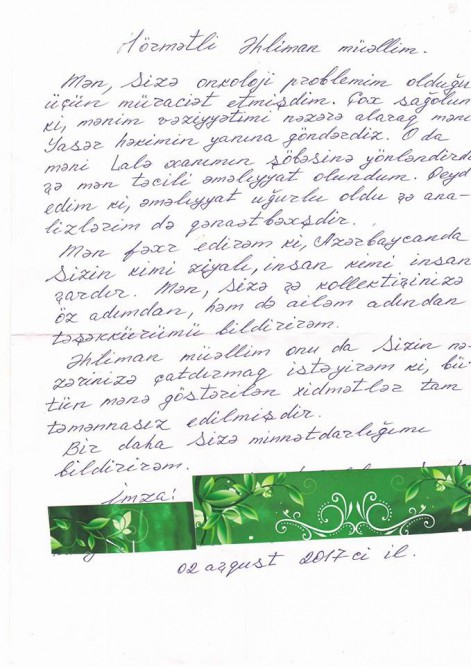 Hörmətli Əhliman müəllim.
Mən, Sizə onkoloji problemim olduğu
üçün müraciət etmişdim. Çox sağolun
ki, mənim vəziyyətimi nəzərə alaraq məni
Yasər həkimin yanına göndərdiz. O da
məni Lalə xanımın şöbəsinə yönləndirdi
və mən təcili əməliyyat olundum. Qeyd
edim ki, əməliyyat uğurlu oldu və ana-
lizlərim də qənaətbəxşdir.
Mən fəxr edirəm ki, Azərbaycanda
Sizin kimi ziyalı, insan kimi insan
vardır. Mən, Sizə və kollektivinizə
öz adımdan, həm də ailəm adından
təşəkkürümü bildirirəm.
Əhliman müəllim onu da Sizin nə-
zərinizə çatdırmaq istəyirəm ki, bü-
tün mənə göstərilən xidmətlər tam
təmənnasız edilmişdir.
Bir daha Sizə minnətdarlığımı
bildirirəm.
İmza:
02 avqust 2017-ci il.